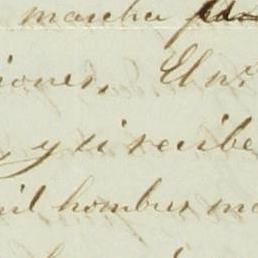 marcha
iones, El nº
y si recibe
mil hombres ma